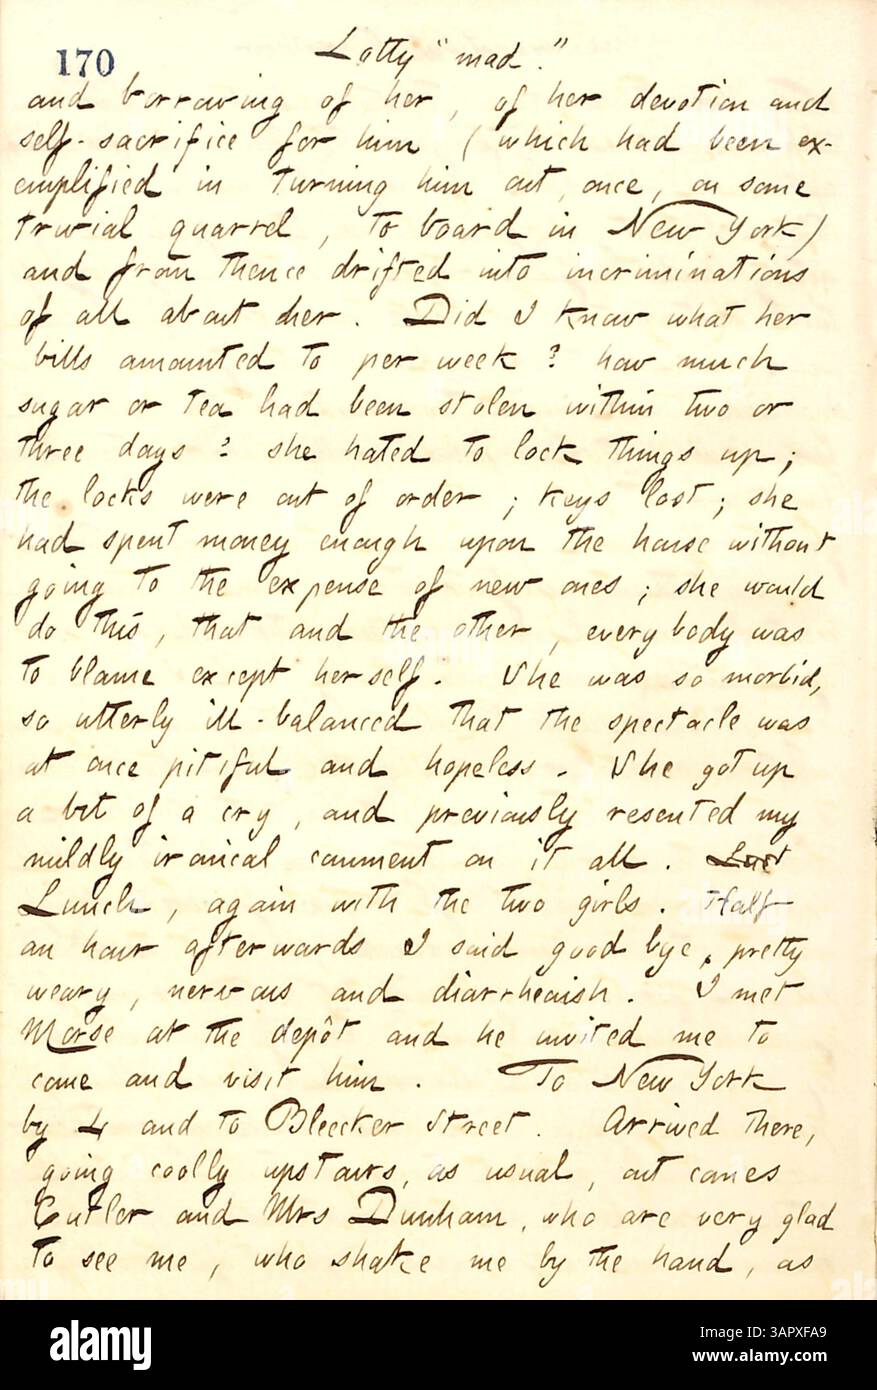 170
Lotty "mad."
and borrowing of her, of her devotion and
self-sacrifice for him (which had been ex-
emplified in turning him out, once, on some
trivial quarrel, to board in New York)
and from thence drifted into incriminations
of all about her. Did I know what her
bills amounted to per week? how much
sugar or tea had been stolen within two or
three days? she hated to lock things up;
the locks were out of order; keys lost; she
had spent money enough upon the house without
going to the expense of new ones; she would
do this, that and the other, everybody was
to blame except herself. She was so morbid,
so utterly ill-balanced that the spectacle was
at once pitiful and hopeless. She got up
a bit of a cry, and previously resented my
mildly ironical comment on it all.
Lunch, again with the two girls. Half
an hour afterwards I said good bye, pretty
weary, nervous and diarrheaish. I met
Morse at the depôt and he invited me to
come and visit him. To New York
by 4 and to Bleecker Street. Arrived there,
going coolly upstairs, as usual, out comes
Cutler and Mrs Dunham, who are very glad
to see me, who shake me by the hand, as
alamy
Image ID: 3APXFA9
www.alamy.com